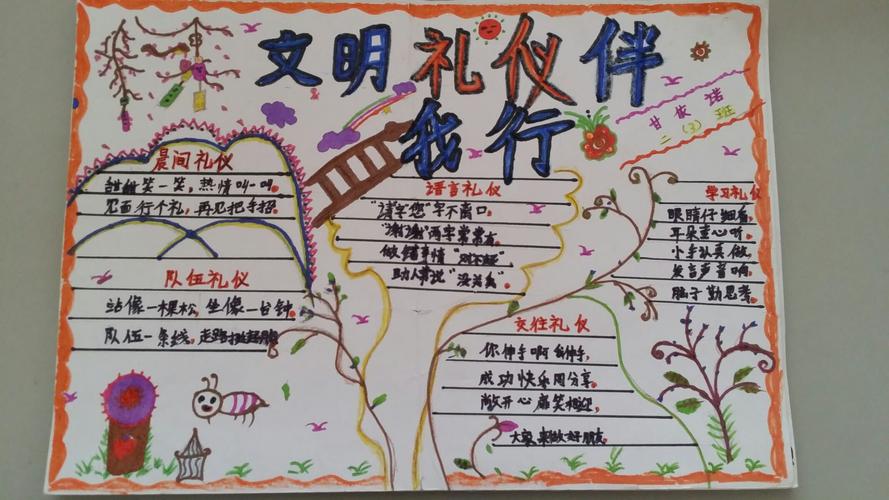 文明礼仪伴
我行
甘 诺
二(3)班
晨间礼仪
甜甜笑一笑,热情叫一叫。
见面行个礼,再见把手招。
队伍礼仪
站像一棵松,坐像一台钟。
队伍一条线,走路
语言礼仪
"请字您"字不离口。
"谢谢"两字常常有。
做错事情"对不起"。
助人常说"没关系"
交往礼仪
你伸手啊我伸手,
成功快乐同分享。
敞开心扉笑相迎,
大家来做好朋友。
学习礼仪
眼睛仔细看,
耳朵专心听。
小手认真做。
发言声音响。
脑子勤思考。